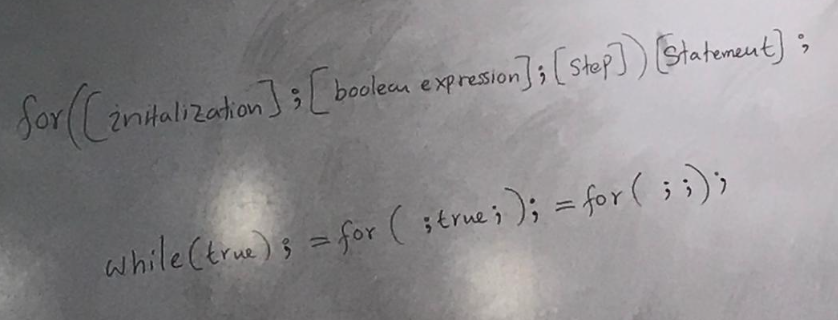 for([initalization];[boolean expression];[step])[Statement];
while(true); = for( ;true;); = for( ;;);